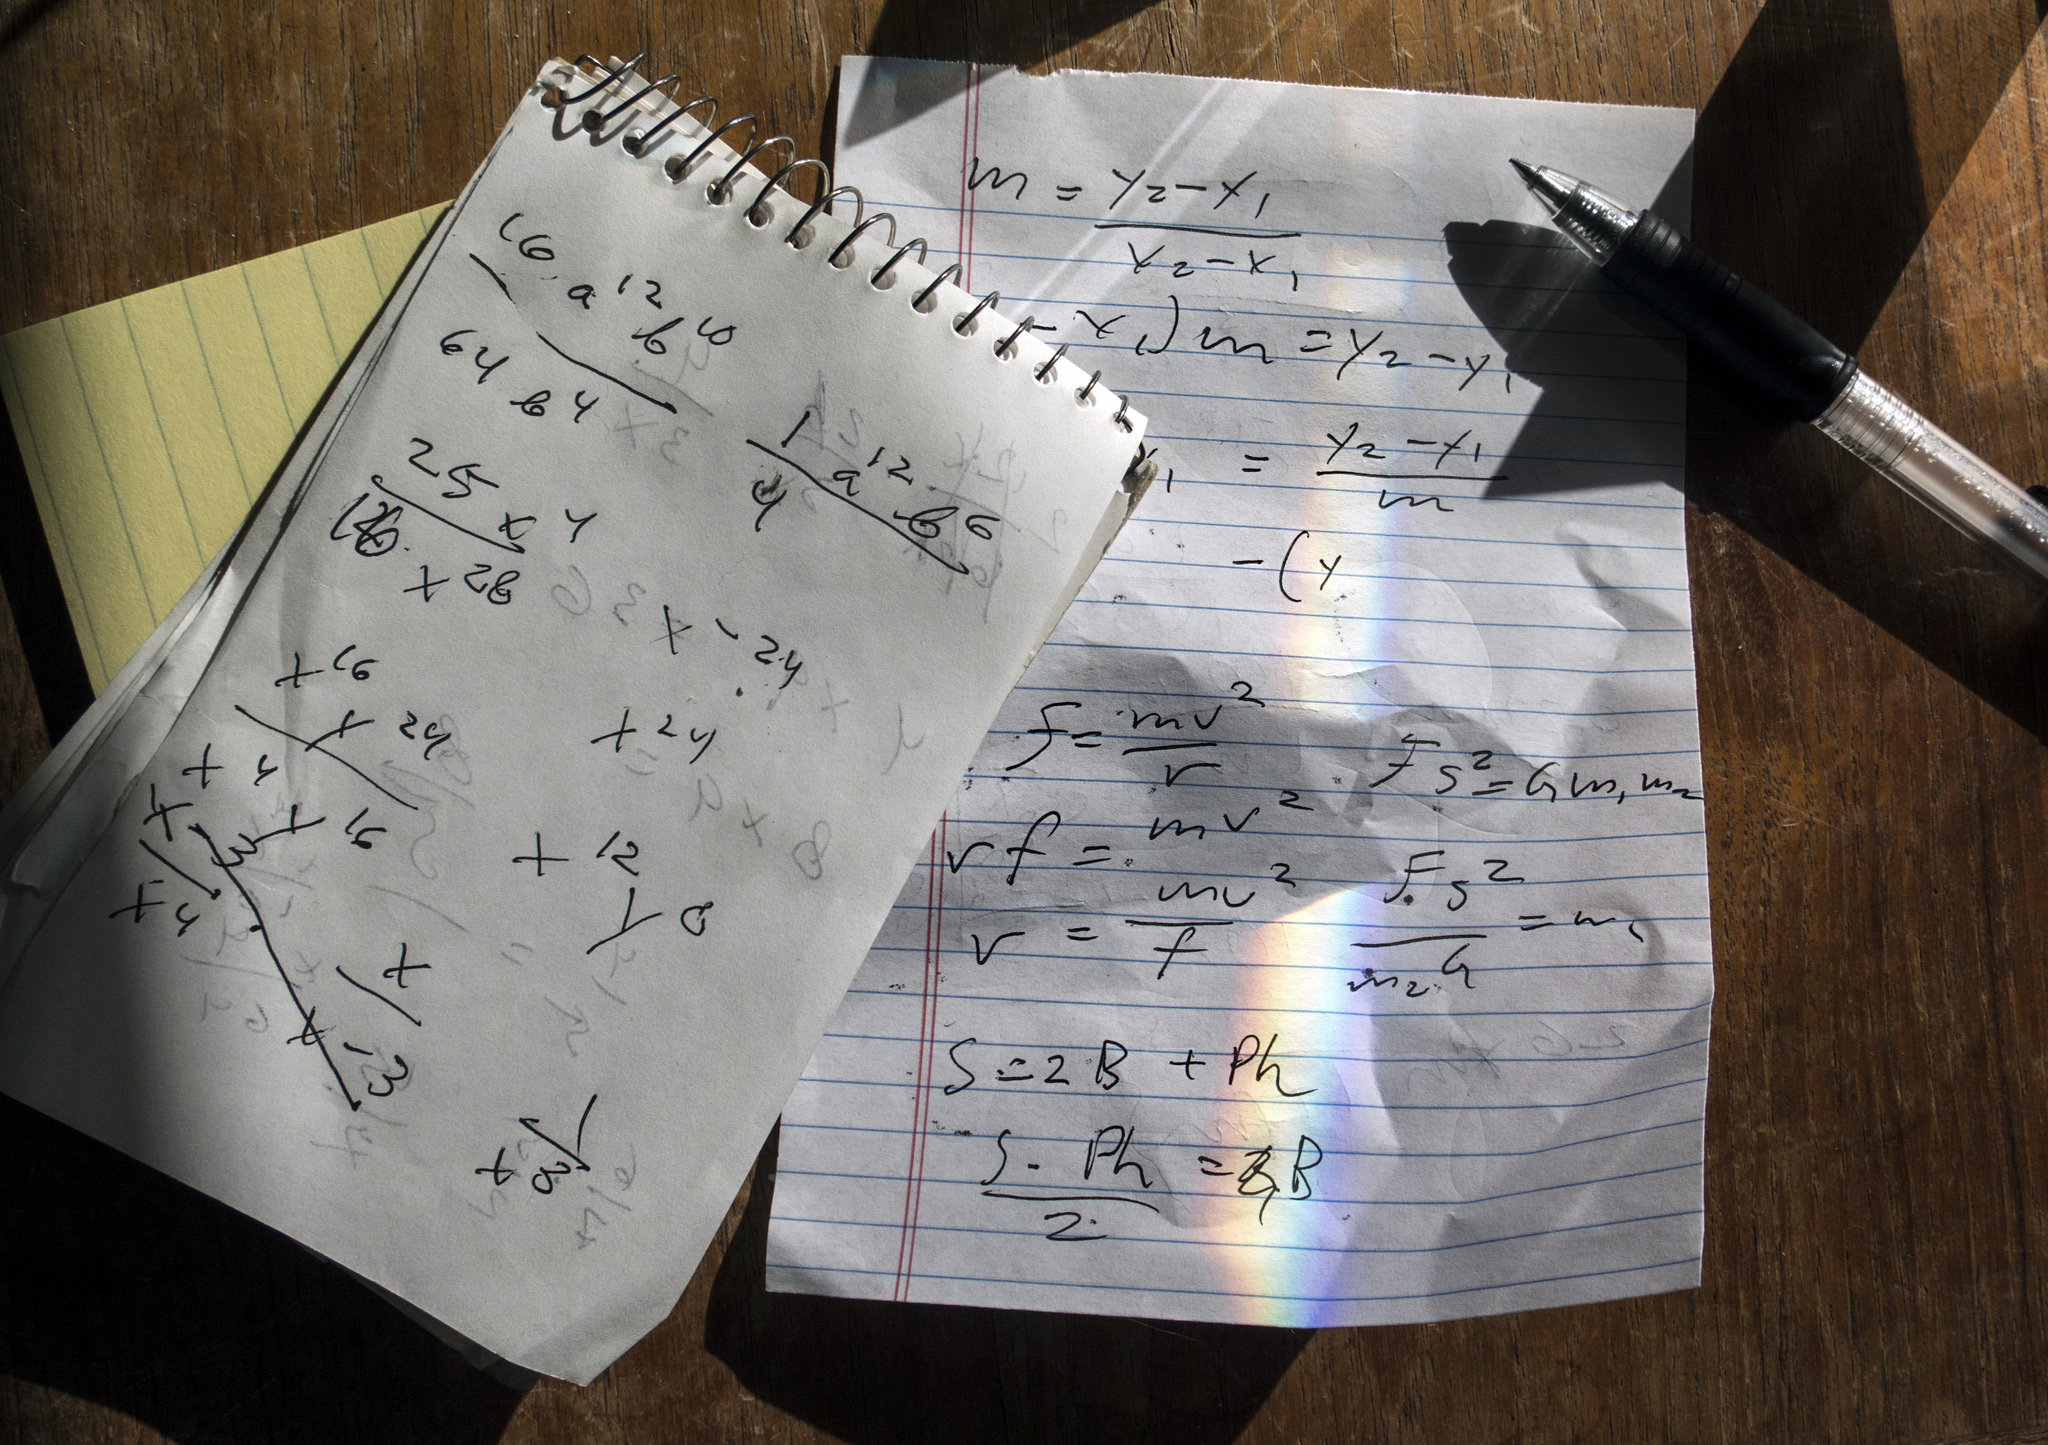 16 a¹² b¹⁰
64 b⁴
1 a¹² b⁶
4
25 x⁴
x²⁸
x⁻²⁴
x¹⁶
x²⁴
x²⁴
x⁴
x¹⁶
x¹²
x⁴
x⁸
x
x¹³
x³
m = y₂-y₁
x₂-x₁
- x₁) m = y₂-y₁
₁ = y₂-y₁
m
-(y
f = mv²
r
Fs² = G m₁ m₂
rf = mv²
r = mv²
f
Fs² = m₁
m₂G
S = 2B + Ph
S - Ph = B
2